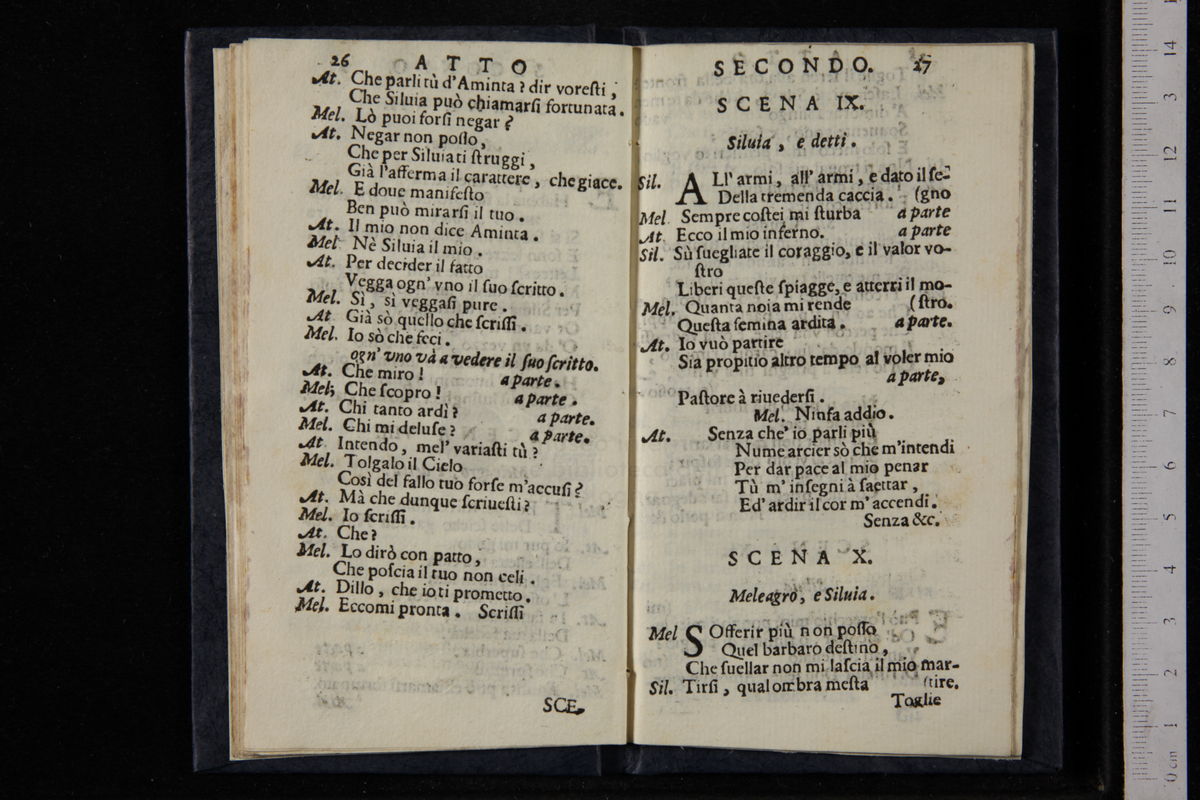 26 ATTO
At. Che parli tù d'Aminta? dir voreſti,
Che Siluia può chiamarſi fortunata.
Mel. Lò puoi forſi negar?
At. Negar non poſſo,
Che per Siluia ti ſtruggi,
Già l'afferma il carattere, che giace.
Mel. E doue manifeſto
Ben può mirarſi il tuo.
At. Il mio non dice Aminta.
Mel Nè Siluia il mio.
At. Per decider il fatto
Vegga ogn' vno il ſuo ſcritto.
Mel. Sì, sì veggaſi pure.
At Già sò quello che ſcriſſi.
Mel. Io sò che feci.
ogn' vno và a vedere il ſuo ſcritto.
At. Che miro! a parte.
Mel; Che ſcopro! a parte.
At. Chi tanto ardì? a parte.
Mel. Chi mi deluſe? a parte.
At Intendo, mel' variaſti tù?
Mel. Tolgalo il Cielo
Così del fallo tuò forſe m'accuſi?
At. Mà che dunque ſcriueſti?
Mel. Io ſcriſſi.
At. Che?
Mel. Lo dirò con patto,
Che poſcia il tuo non celi.
At. Dillo, che io ti prometto.
Mel. Eccomi pronta. Scriſſi
SCE.
SECONDO. 27
SCENA IX.
Siluia, e detti.
Sil. ALl' armi, all' armi, e dato il ſe-
Della tremenda caccia. (gno
Mel Sempre coſtei mi ſturba a parte
At. Ecco il mio inferno. a parte
Sil. Sù ſuegliate il coraggio, e il valor vo-
ſtro
Liberi queſte ſpiagge, e atterri il mo-
Mel. Quanta noia mi rende (ſtro.
Queſta femina ardita. a parte.
At. Io vuò partire
Sia propitio altro tempo al voler mio
a parte,
Paſtore à riuederſi.
Mel. Ninfa addio.
At. Senza che' io parli più
Nume arcier sò che m'intendi
Per dar pace al mio penar
Tù m' inſegni à ſaettar,
Ed' ardir il cor m' accendi.
Senza &c.
SCENA X.
Meleagro, e Siluia.
Mel SOfferir più non poſſo
Quel barbaro deſtino,
Che ſuellar non mi laſcia il mio mar-
Sil. Tirſi, qual ombra meſta (tire.
Toglie